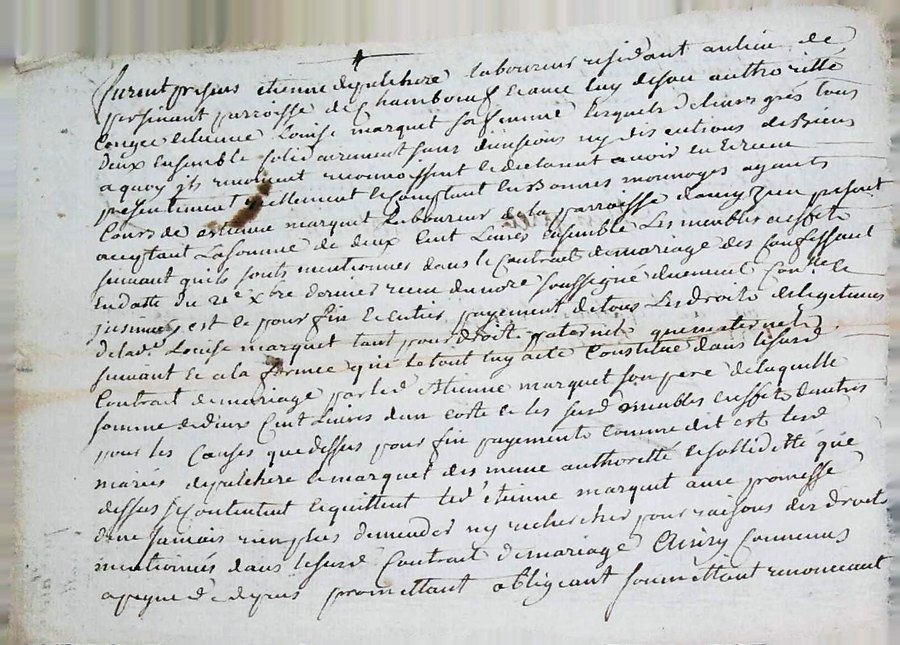 furent presens etienne depulchere laboureur residant au lieu de
parroisse de Chamboeuf et avec luy de son authorité
Congee et licence Louise marquet sa femme lesquels de leurs grés tous
deux ensemble solidairement sans divisions ny discutions de Biens
a quoy ils renoncent reconnoissent et declarent avoir eu et receu
presentement reellement et Comptant en Bonnes monnoyes ayants
Cours de estienne marquet Laboureur de la parroisse present
acceptant La somme de deux Cent Livres ensemble Les meubles et effets
suivant qu'ils sonts mentionnes dans le Contrat de mariage des Confessant
en datte du xbre dernier receu du nore soussigné duement Controlle
jnsinué et ce pour fin et entier payement de tous Les droits et legitimes
de lad. Louise marquet tant pour droit paternels que maternels
suivant et a la forme qui le tout luy a été Constitué dans le susd
Contrait de mariage par led Etienne marquet son pere de laquelle
somme de deux Cent Livres d'une coste et les susd meubles et effets d'autres
pour les Causes que dessus pour fin payement Comme dit est lesd
mariés depulchere et marquet des meme authorité et sollidité que
dessus se Contentent et quittent led etienne marquet avec promesse
de ne jamais rien plus demender ny rechercher pour raisons des droits
mentionnés dans le susd Contrait de mariage Commun
a peyne de promettant obligeant soumettant renonceant